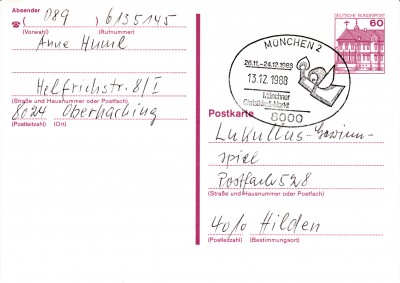 Absender
☎ ( 089 ) 6135145
(Vorwahl) (Rufnummer)
Anne Huml
Helfrichstr. 8/I
(Straße und Hausnummer oder Postfach)
8024 Oberhaching
(Postleitzahl) (Ort)
DEUTSCHE BUNDESPOST
60
MÜNCHEN 2
26.11.-24.12.1988
13.12.1988
Münchner
Christkindl-Markt
8000
Postkarte
Lukullus-Gewinn-
spiel
Postfach 528
(Straße und Hausnummer oder Postfach)
4010 Hilden
(Postleitzahl) (Bestimmungsort)